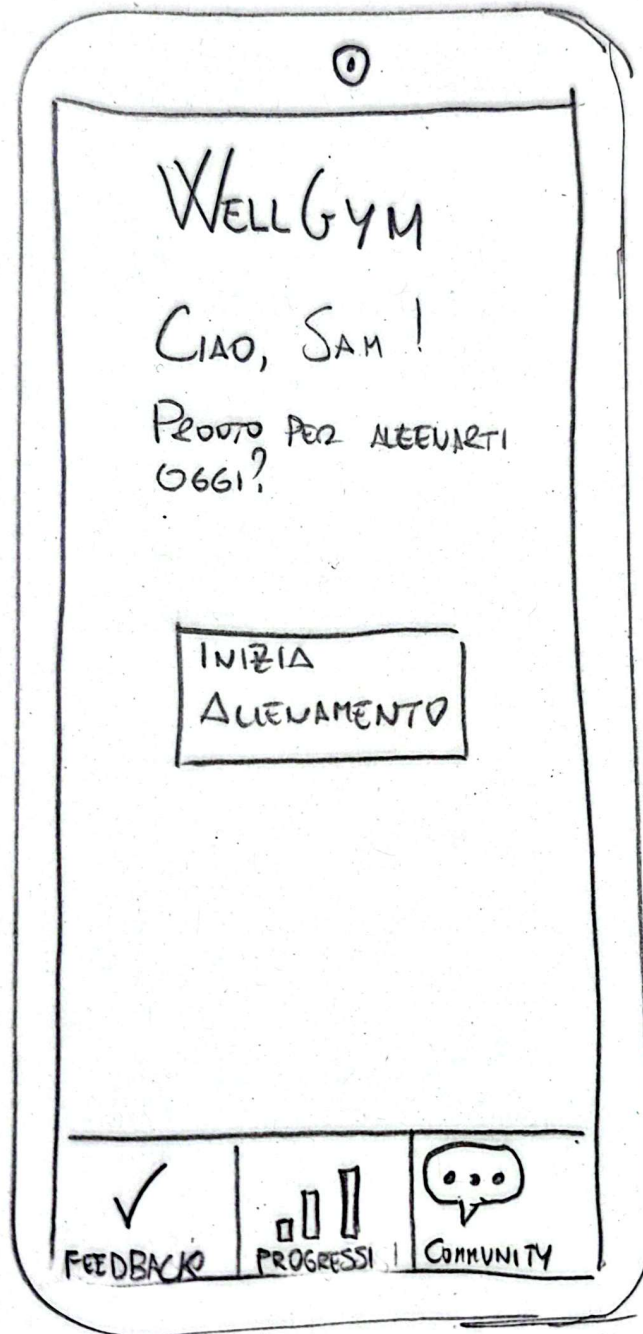 WELLGYM
CIAO, SAM!
PRONTO PER ALLENARTI
OGGI?
INIZIA
ALLENAMENTO
FEEDBACK
PROGRESSI
COMMUNITY